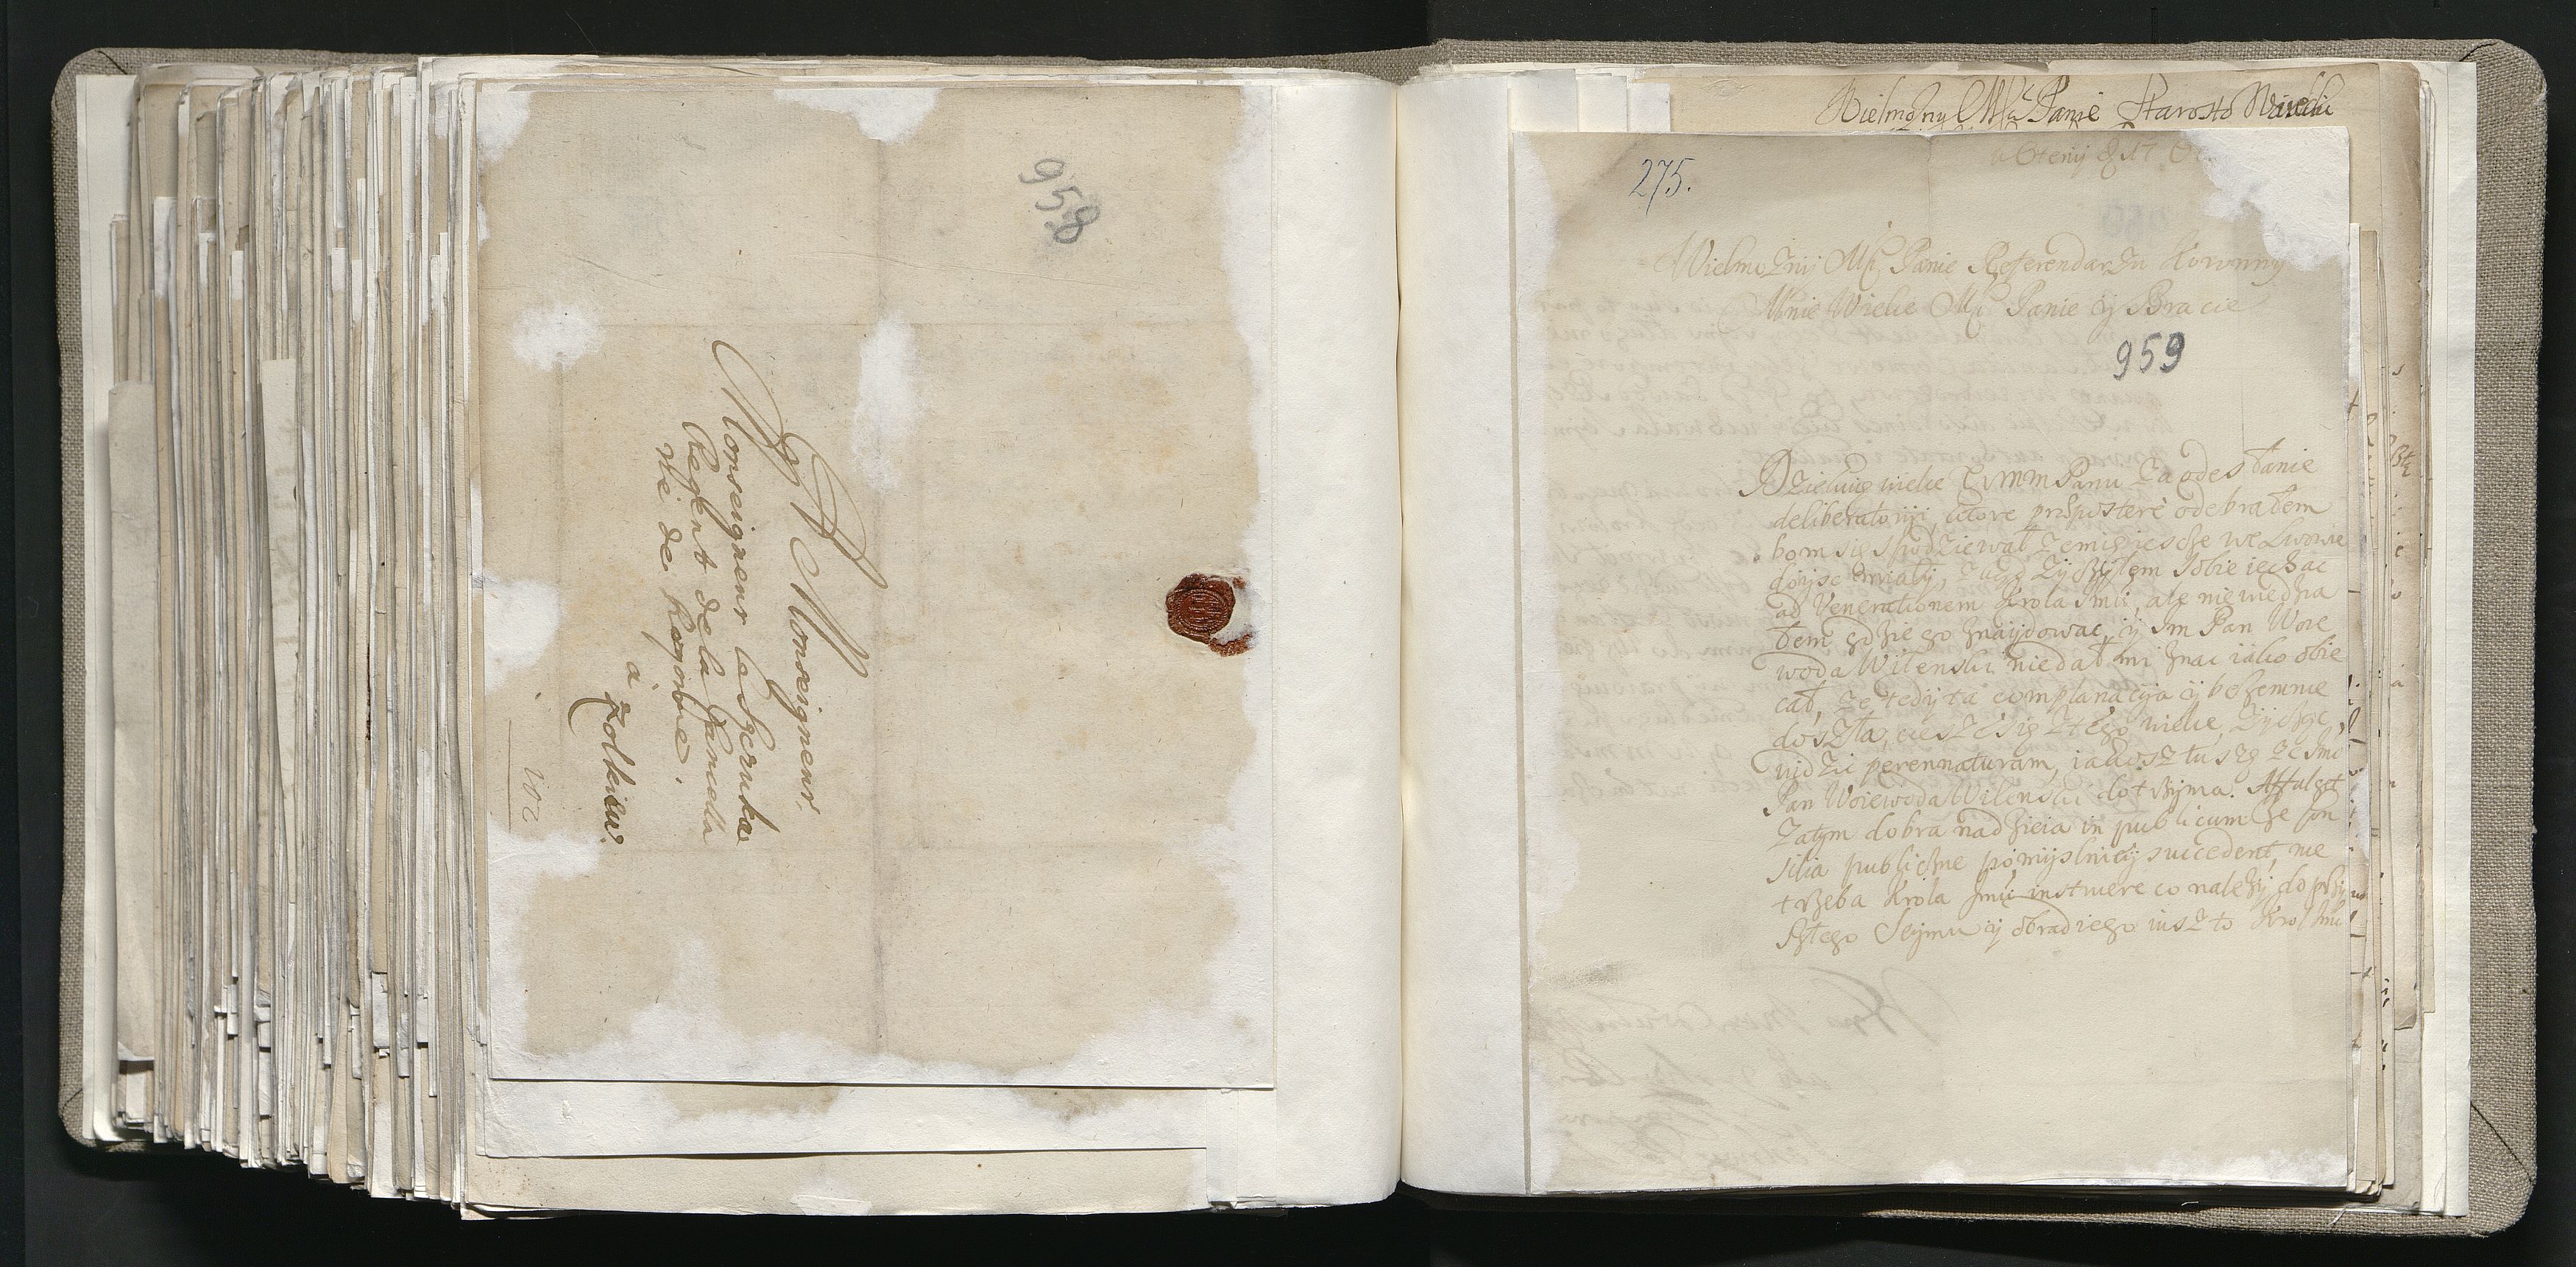 958
A Monseigneur,
Monseigneur le Szczuka
Regent de la Cancella
rie de Pologne.
à
Zolkiew.
102
Wielmozny Mci Panie Starosto
275.
Wielmoznÿ Mći Panie Referendarzu Koronnÿ
Mnie Wielce Mći Panie ÿ Bracie
959
Dziekuię wielce WMM Panu za odesłanie
deliberatoriÿ, ktore odebrałem
bom się spodziewał ze mię iescze we Lwowie
doÿsc miałÿ, zÿczÿłem sobie iechac
ad Venerationem Krola Jmci, ale niewiedzia
łem gdzie go znaÿdowac, ÿ Jm Pan Woie
woda Wilenski niedał mi znac iako obie
cał, ze tedÿ ta complanacÿa ÿ bezemnie
doszła, cieszę się z tego wielce, zÿczę,
widziec perennaturam, iakosz tuszę ze Jmc
Pan Woiewoda Wilenski dotrzÿma. Affulget
zatÿm dobra nadzieia in publicum ze Con
silia publiczne pomÿslnieÿ succedent, nie
trzeba Krola Jmci instruere co nalezÿ do przÿ
szłego Seÿmu ÿ obrad iego iusz to Krol Jmc